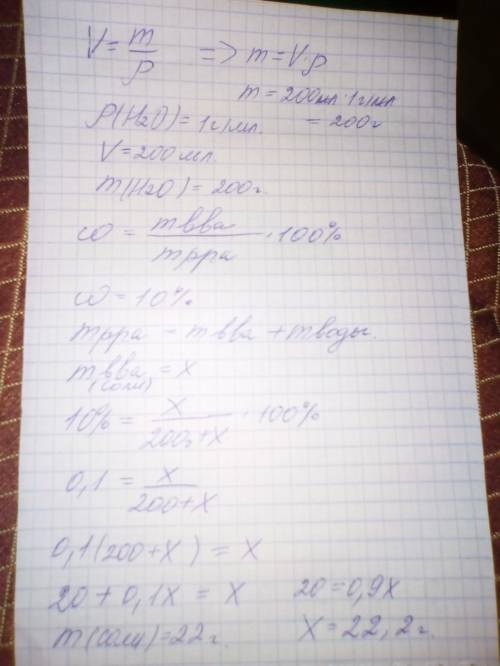 V = m/ρ => m = V·ρ
m = 200мл·1г/мл
ρ(H2O) = 1г/мл. = 200г
V = 200 мл.
m(H2O) = 200г.
ω = mвва/mрра · 100%
ω = 10%
mрра = mвва + mводы.
mвва = x
(соли)
10% = x/200+x · 100%
0,1 = x/200+x
0,1(200+x) = x
20 + 0,1x = x 20 = 0,9x
m(соли) = 22г. x = 22,2г.